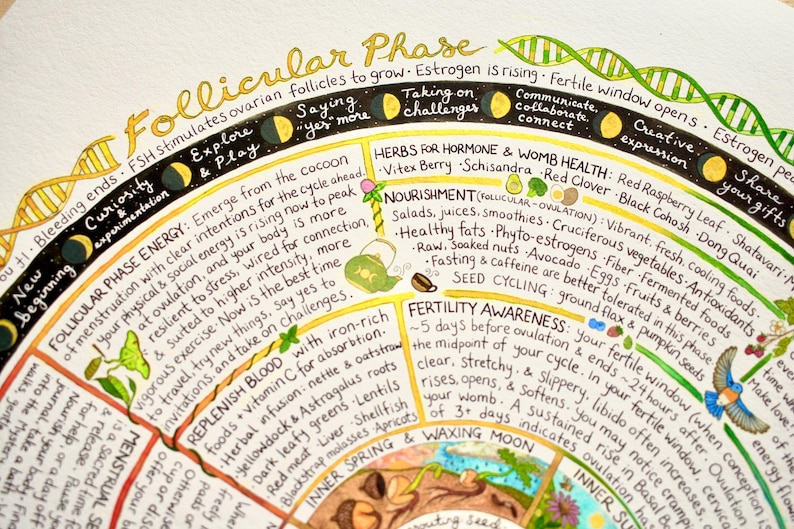 Follicular Phase
Bleeding ends · FSH stimulates ovarian follicles to grow · Estrogen is rising · Fertile window opens · Estrogen
New beginning
Curiosity & experimentation
Explore & Play
Saying "yes" more
Taking on challenges
Communicate, collaborate, connect
Creative expression
Share your gifts
FOLLICULAR PHASE ENERGY: Emerge from the cocoon
of menstruation with clear intentions for the cycle ahead,
your physical & social energy is rising now to peak
at ovulation, and your body is more
resilient to stress, wired for connection,
& suited to higher intensity, more
rigorous exercise. Now is the best time
to travel, try new things, say yes to
invitations, and take on challenges.
HERBS FOR HORMONE & WOMB HEALTH: Red Raspberry Leaf · Shatavari
· Vitex Berry · Schisandra · Red Clover · Black Cohosh · Dong Quai
NOURISHMENT (FOLLICULAR-OVULATION): Vibrant, fresh, cooling foods
Salads, juices, smoothies · Cruciferous vegetables · Antioxidants
· Healthy fats · Phyto-estrogens · Fiber · Fermented foods
· Raw, soaked nuts · Avocado · Eggs · Fruits & berries
· Fasting & caffeine are better tolerated in this phase.
SEED CYCLING: ground flax & pumpkin seed
REPLENISH BLOOD with iron-rich
foods + vitamin C for absorbtion.
Herbal infusion: nettle & oatstraw
Yellowdock & Astragalus roots
Dark leafy greens · Lentils
Red meat · Liver · Shellfish
Blackstrap molasses · Apricots
FERTILITY AWARENESS: your fertile window (when conception
~5 days before ovulation & ends ~24 hours after. Ovulation
the midpoint of your cycle. In your fertile window,
clear, stretchy, & slippery, libido often increases,
rises, opens, & softens. You may notice
your womb. A sustained rise in Basal
of 3+ days indicates ovulation
INNER SPRING & WAXING MOON
INNER
sprouting seed
MENSTRUAL